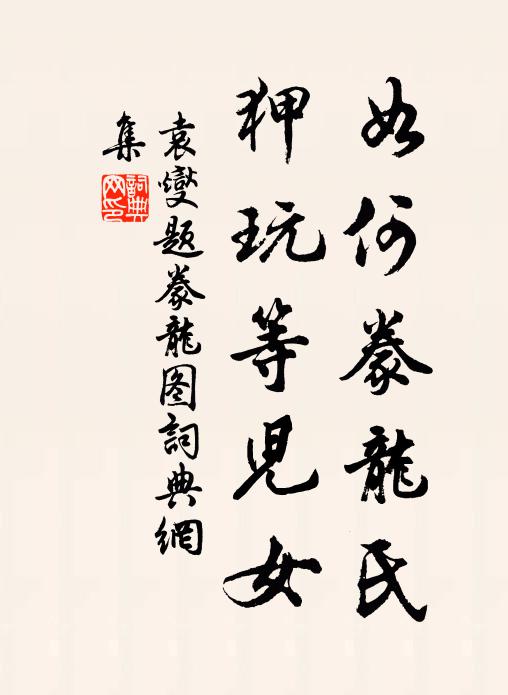 如何豢龍氏
狎玩等兒女
袁燮題豢龍图詞典網
集
詞典
网印